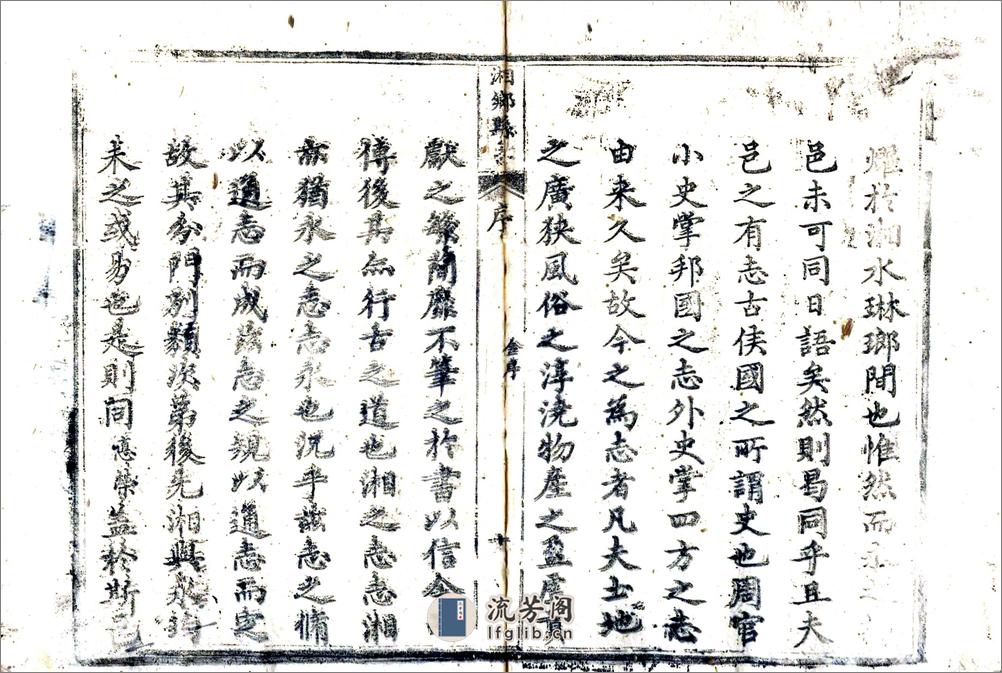 燿於湘水琳瑯間也惟然而永之
邑未可同日語矣然則曷同乎且夫
邑之有志古侯國之所謂史也周官
小史掌邦國之志外史掌四方之志
由来久矣故今之為志者凡夫土地
之廣狹風俗之淳澆物產之盈虛
湘鄉縣志
序
金序
十
獻之繁簡靡不筆之於書以信今
傳後其亦行古之道也湘之志志湘
亦猶永之志志永也況乎議志之脩
以通志而成議志之規以通志而定
故其分門別類次第後先湘與永鈞
未之或易也是則同
益於斯已
流芳阁
lfglib.cn